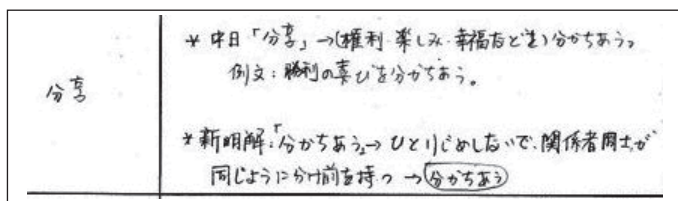 分享
* 中日「分享」→(権利・楽しみ・幸福などを)分かちあう。
例文:勝利の喜びを分かちあう。
* 新明解:「分かちあう」→ ひとりじめしないで、関係者同士が
同じように分け前を持つ → 分かちあう